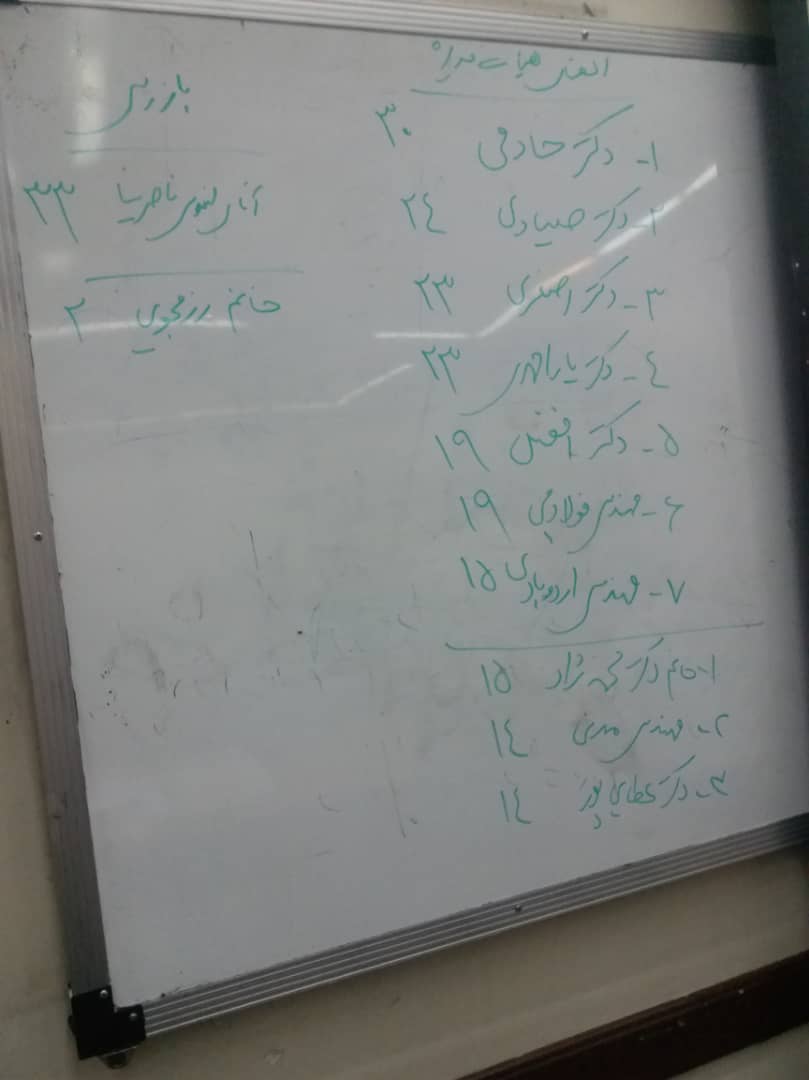 اعضای هیات مدیره
۱- دکتر خادمی ۳۰
۲- دکتر صیادی ۲٤
۳- دکتر اصغری ۲۳
٤- دکتر یاراحمدی ۲۳
۵- دکتر افضلی ۱۹
۶- مهندس فولادچی ۱۹
۷- مهندس اردوبادی ۱۵
۱- خانم دکتر نژاد ۱۵
۲- مهندس مدنی ۱٤
۳- دکتر عطایی پور ۱٤
بازرس
آقای ناصرنیا ۳۳
خانم رزمجویی ۲